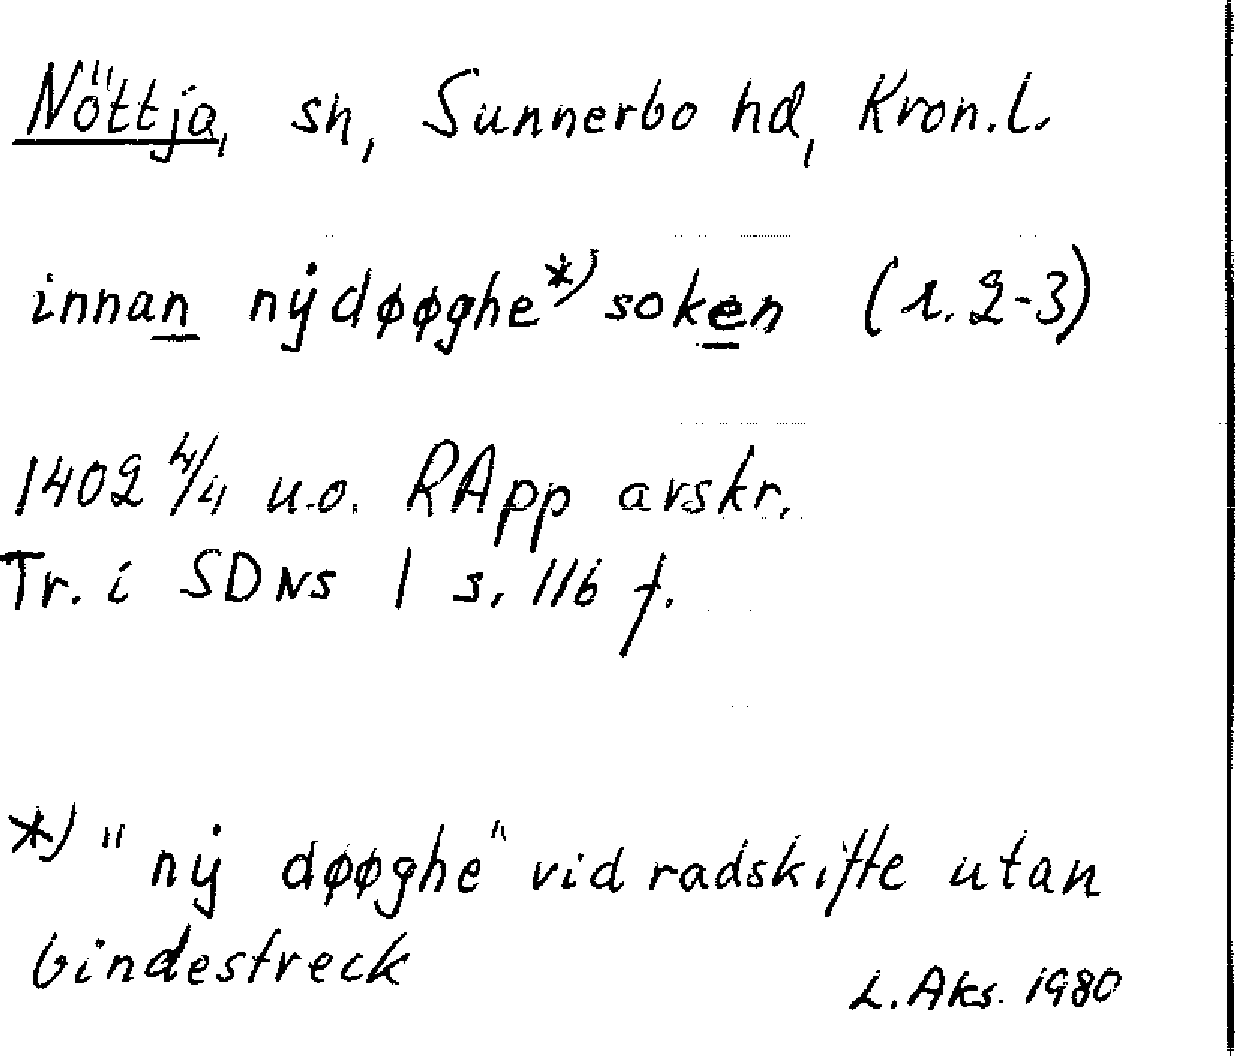 Nöttja, sn, Sunnerbo hd, Kron.l.
innan nẏdøøghe*) soken (r. 2-3)
1402 4/4 u.o. RApp avskr.
Tr. i SDNS 1 s. 116 f.
*) "nẏ døøghe" vid radskifte utan
bindestreck
L. Aks. 1980